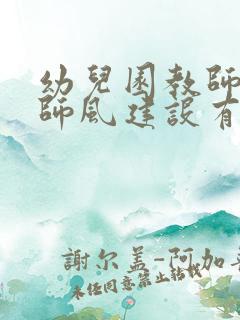 幼兒園教師
師風建設有
謝尔盖-阿加
未经同意禁止轉載